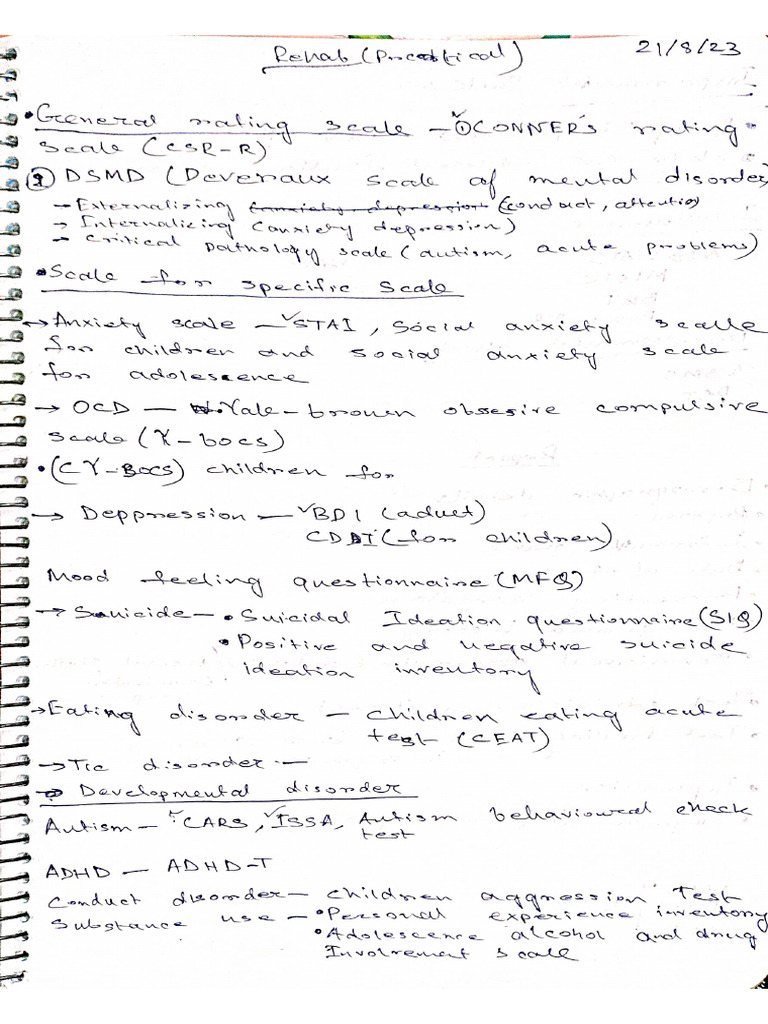 Rehab (Practical) 21/8/23
• General rating scale – ① CONNER'S rating
scale (CSR-R)
② DSMD (Deveraux scale of mental disorder)
– Externalizing (conduct, attention)
→ Internalizing (anxiety depression)
– Critical pathology scale (autism, acute problems)
• Scale for specific scale
→ Anxiety scale – ✓STAI, Social anxiety scalle
for children and social anxiety scale
for adolescence
→ OCD – Yale-brown obsesive compulsive
scale (Y-bocs)
• (CY-BOCS) children for
→ Deppression – ✓BDI (aduct)
CDI (for children)
Mood feeling questionnaire (MFQ)
→ Suicide – • Suicidal Ideation questionnaire (SIQ)
• Positive and negative suicide
ideation inventory
→ Eating disorder – children eating acute
test (CEAT)
→ Tic disorder –
→ Developmental disorder
Autism – ✓CARS, ✓ISSA, Autism behavioural check
test
ADHD – ADHD-T
Conduct disorder – children aggression Test
Substance use – • Personal experience inventory
• Adolescence alcohol and drug
Involvement scale